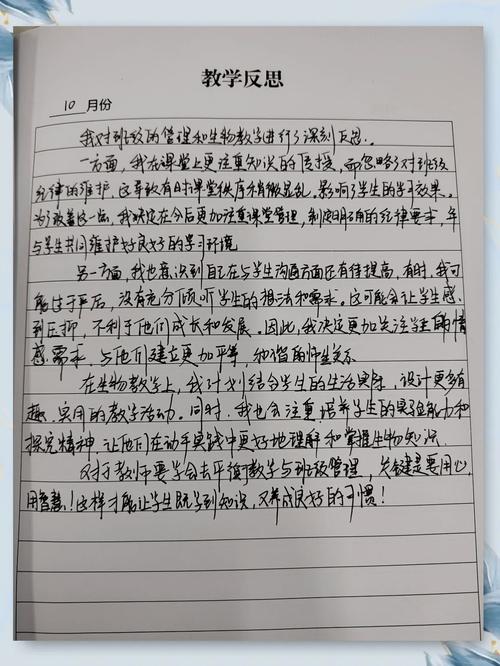 教学反思
10 月份
我对班级的管理和生物教学进行了深刻反思.
一方面,我在课堂上更注重知识的传授,而忽略了对班级
纪律的维护。这导致有时课堂秩序稍微显乱。影响了学生的学习效果。
为了改善这一点,我决定在今后更加注重课堂管理,制定明确的纪律要求,并
与学生共同维护好良好的学习环境
另一方面,我也意识到自己在与学生沟通方面还有待提高,有时,我可
能过于严厉,没有充分倾听学生的想法和需求。这可能会让学生感
到压抑,不利于他们成长和发展。因此,我决定更加关注学生的情
感需求,与他们建立更加平等,和谐的师生关系
在生物教学上,我计划结合学生的生活实际,设计更多有
趣、实用的教学活动。同时,我也会注重培养学生的实验能力和
探究精神,让他们在动手实践中更好地理解和掌握生物知识.
对于教师要学会去平衡教学与班级管理,关键是要用心
用智慧!这样才能让学生既学到知识,又养成良好的习惯!